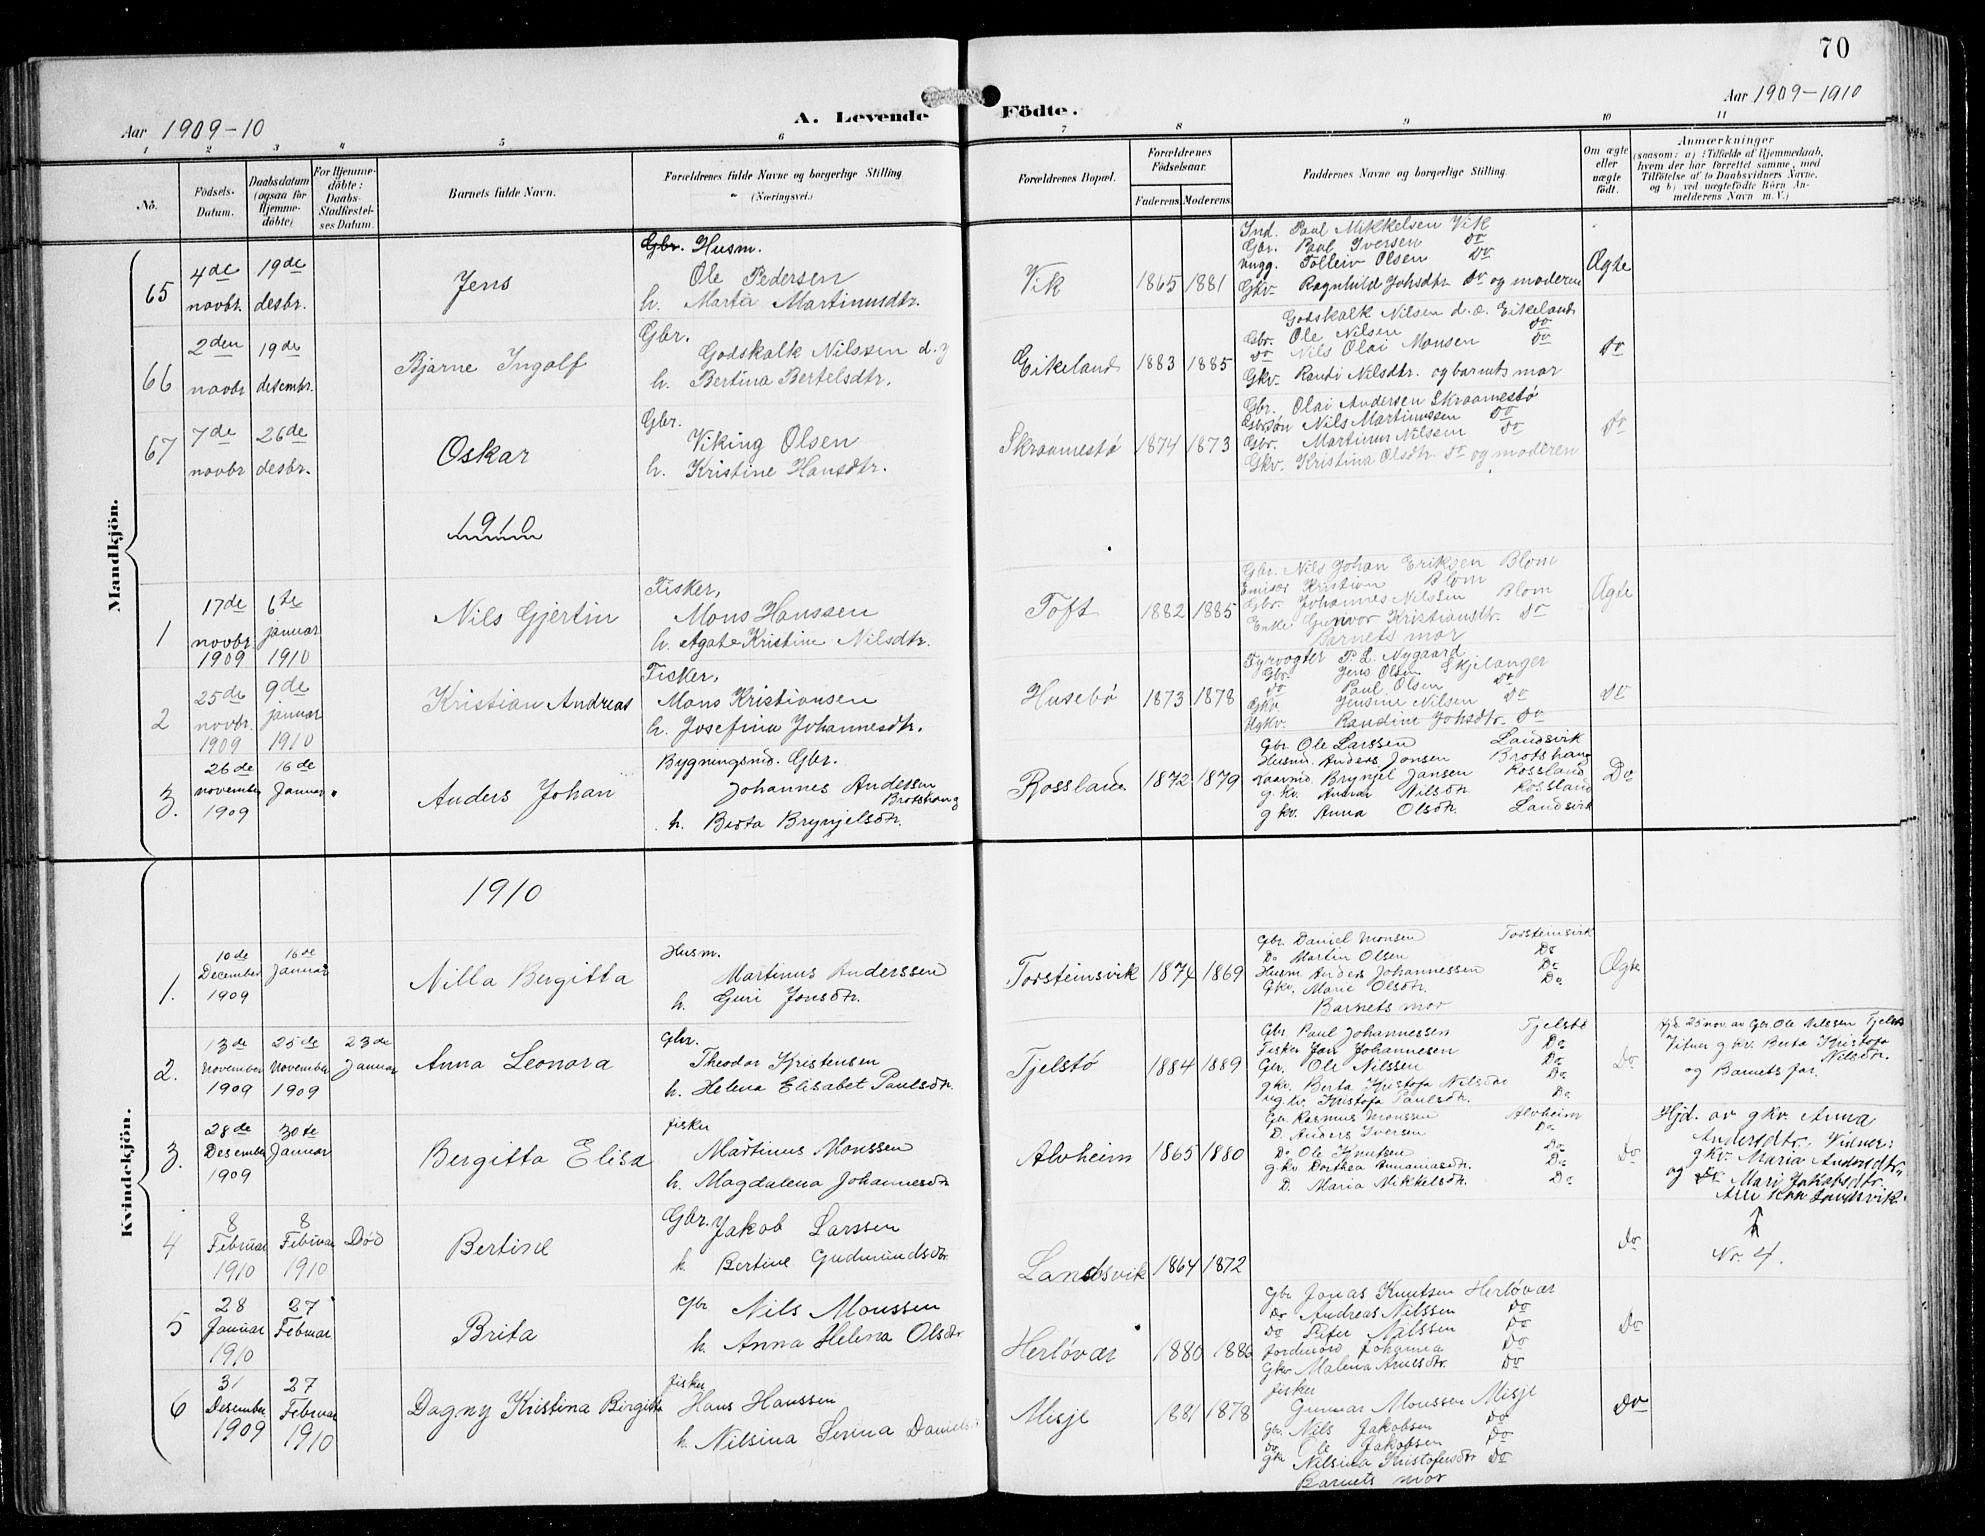 70
Aar 1909-10
A. Levende Födte.
Aar 1909-1910
1 2 3 4 5 6 7 8 9 10 11
No.
Födsels-Datum.
Daabsdatum (ogsaa for Hjemmedöbte)
For Hjemmedöbte: Daabs-Stadfæstelses Datum.
Barnets fulde Navn.
Forældrenes fulde Navne og borgerlige Stilling (Næringsvei.)
Forældrenes Bopæl.
Forældrenes Födselsaar.
Faderens. Moderens.
Faddernes Navne og borgerlige Stilling.
Om ægte eller uægte födt.
Anmærkninger
(saasom: a) i Tilfælde af Hjemmedaab, hvem der har forrettet samme, med Tilföielse af to Daabsvidners Navne, og b) ved uægtefödte Börn Anmelderens Navn m. V.)
Mandkjön.
65
4de novbr.
19de desbr.
Jens
Gbr. Husm.
Ole Pedersen
h. Marta Martinusdtr.
Vik
1865 1881
Ind. Paul Mikkelsen Vik
Gbr. Paul Iversen do
ungg. Tolleiv Olsen do
Gkv. Ragnhild Johsdtr. do og moderen
Ægte
66
2den novbr
19de desempr.
Bjarne Ingolf
Gbr.
Godskalk Nilssen d.y
h. Bertina Bertelsdtr.
Eikeland
1883 1885
Godskalk Nilsen d.æ. Eikeland
Gbr. Ole Nilsen do
do Nils Olai Monsen do
Gkv. Randi Nilsdtr. og barnets mor
do
67
7de novbr
26de desbr.
Oskar
Gbr.
Viking Olsen
h. Kristine Hansdtr.
Skraamestø
1874 1873
Gbr. Olai Andersen Skraamestø
Gbrsøn Nils Martinussen do
Gbr. Martinus Nilssen do
Gkv. Kristina Olsdtr. do og moderen
do
1910
1
17de novbr. 1909
6te januar 1910
Nils Gjertin
Fisker,
Mons Hanssen
h. Agate Kristine Nilsdtr.
Toft
1882 1885
Gbr. Nils Johan Eriksen Blom
Kristian Blom
Gbr. Johannes Nilssen Blom
Enke Gunvor Kristiansdtr. do
Barnets mor
Ægte
2
25de novbr. 1909
9de januar 1910
Kristian Andreas
Fisker,
Mons Kristiansen
h. Josefina Johannesdtr.
Husebø
1873 1878
Fyrvogter P. L. Nygaard
Gbr. Jens Olsen Skjelanger
do Paul Olsen do
Gkv Jensine Nilsen do
Ugkv. Randine Johsdtr. do
do
3.
26de november 1909
16de Januar
Anders Johan
Bygningsmd. Gbr.
Johannes Anderssen Brotshaug
h. Berta Brynjelsdtr.
Rossland
1872 1879
Gbr Ole Larssen Landsvik
Husmd. Anders Jonsen Brotshaug
Brynjel Jansen Rossland
g.kv. Anna Nilsdtr Rossland
g kv. Anna Olsdtr. Landsvik
Do
Kvindekjön.
1910
1.
10de December 1909
16de Januar
Nilla Bergitta
Husm.
Martinus Anderssen
h. Guri Jonsdtr.
Torsteinsvik
1874 1869
Gbr. Daniel Monsen Torsteinsvik
Do Martin Olsen Do
Husm Anders Johannessen Do
Gkv. Marie Olsdtr. Do
Barnets mor
Ægte
2.
13de November 1909
25de November 1909
23de Januar
Anna Leonora
Gbr.
Theodor Kristensen
h. Helena Elisabet Paulsdtr.
Tjelstø
1884 1889
Gbr Paul Johannessen Tjelstø
Fisker Jon Johannesen Do
Gbr. Ole Nilssen Do
gkv. Berta Kristofa Nilsdtr Do
ug.kv. Kristofa Paulsdtr. Do
Do
Hjd. 25 nov. av Gbr Ole Nilssen Tjelstø
Vitner g kv. Berta Kristofa Nilsdtr.
og Barnets far.
3.
28de Desember 1909
30te Januar
Bergitta Elisa
fisker
Martinus Monssen
h. Magdalena Johannesdtr
Alvheim
1865 1880
Gbr Rasmus Monssen Alvheim
D. Anders Iversen Do
Do Ole Knutsen Do
g kv Dorthea Annaniasdtr. Do
D. Maria Mikkelsdtr. Do
Do
Hjd. av gkv Anna
Andersdtr. Vidner:
gkv. Maria Andersdtr.
og Do Mari Jakobsdtr.
4
8 Februar 1910
8 Februar 1910
Død
Bertine
Gbr. Jakob Larssen
h. Bertine Gudmundsdtr.
Landsvik
1864 1872
Do
Nr. 4.
5
28 Januar 1910
27 Februar
Brita
Gbr Nils Monssen
h. Anna Helena Olsdtr
Herløvær
1880 1886
Gbr Jonas Knutsen Herløvær
Do Andreas Nilssen Do
Do Peter Nilssen Do
Jordmord Johanna Do
Gkv Malena Arnesdtr. Do
Do
6
31 Desember 1909
27 Februar 1910
Dagny Kristina Birgitta
fisker
Hans Hanssen
h. Nilsina Serina Daniels
Misje
1881 1878
fisker
Gunnar Monssen Misje
Gbr. Nils Jakobsen Do
Do Ole Jakobsen Do
gkv Nilsina Kristofersdtr Do
Barnets mor
Do